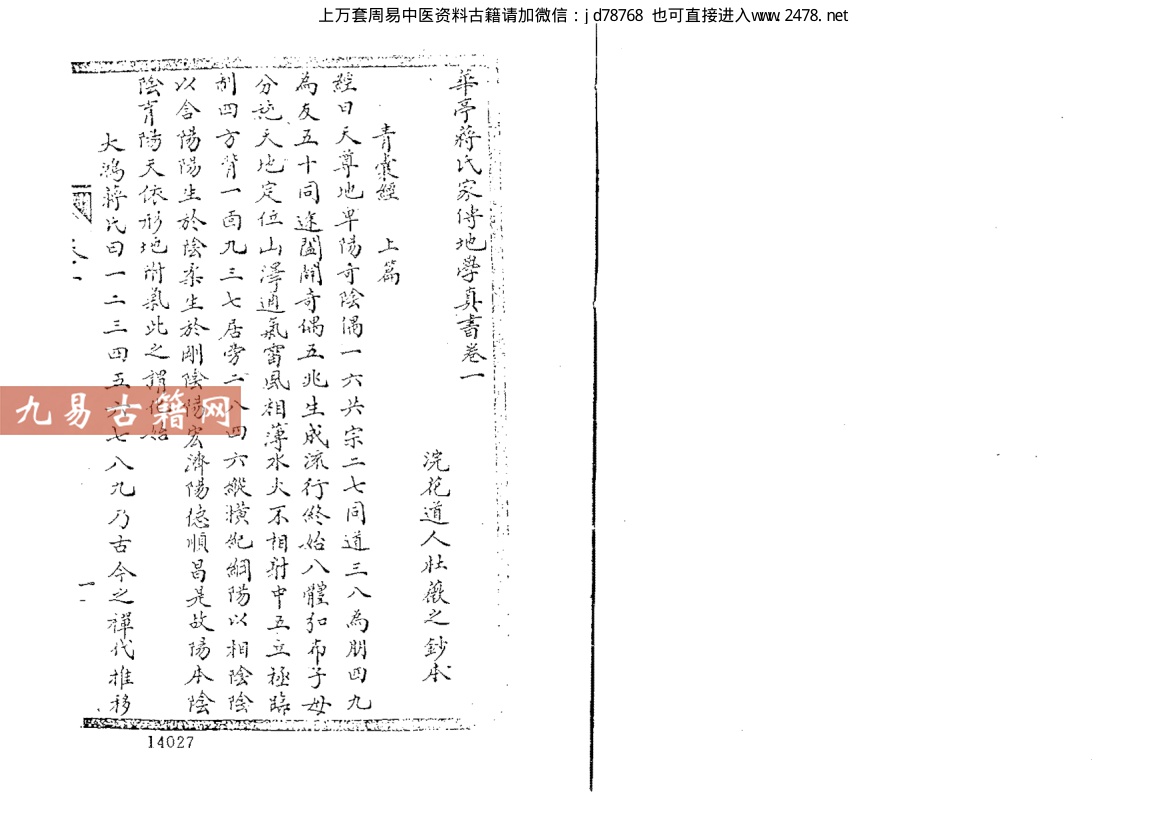 上万套周易中医资料古籍请加微信：jd78768 也可直接进入www.2478.net
華亭蔣氏家傳地學真書卷一
浣花道人杜薇之鈔本
青囊經 上篇
經曰天尊地卑陽奇陰偶一六共宗二七同道三八為朋四九
為友五十同途闔闢奇偶五兆生成流行終始八體弘布子母
分施天地定位山澤通氣雷風相薄水火不相射中五立極臨
制四方背一面九三七居旁二八四六縱橫紀綱陽以相陰陰
以含陽陽生於陰柔生於剛陰陽宏濟陽德順昌是故陽本陰
陰育陽天依形地附氣此之謂化始
大鴻蔣氏曰一二三四五六七八九乃古今之禪代推移
卷一
一
九易古籍网
14027